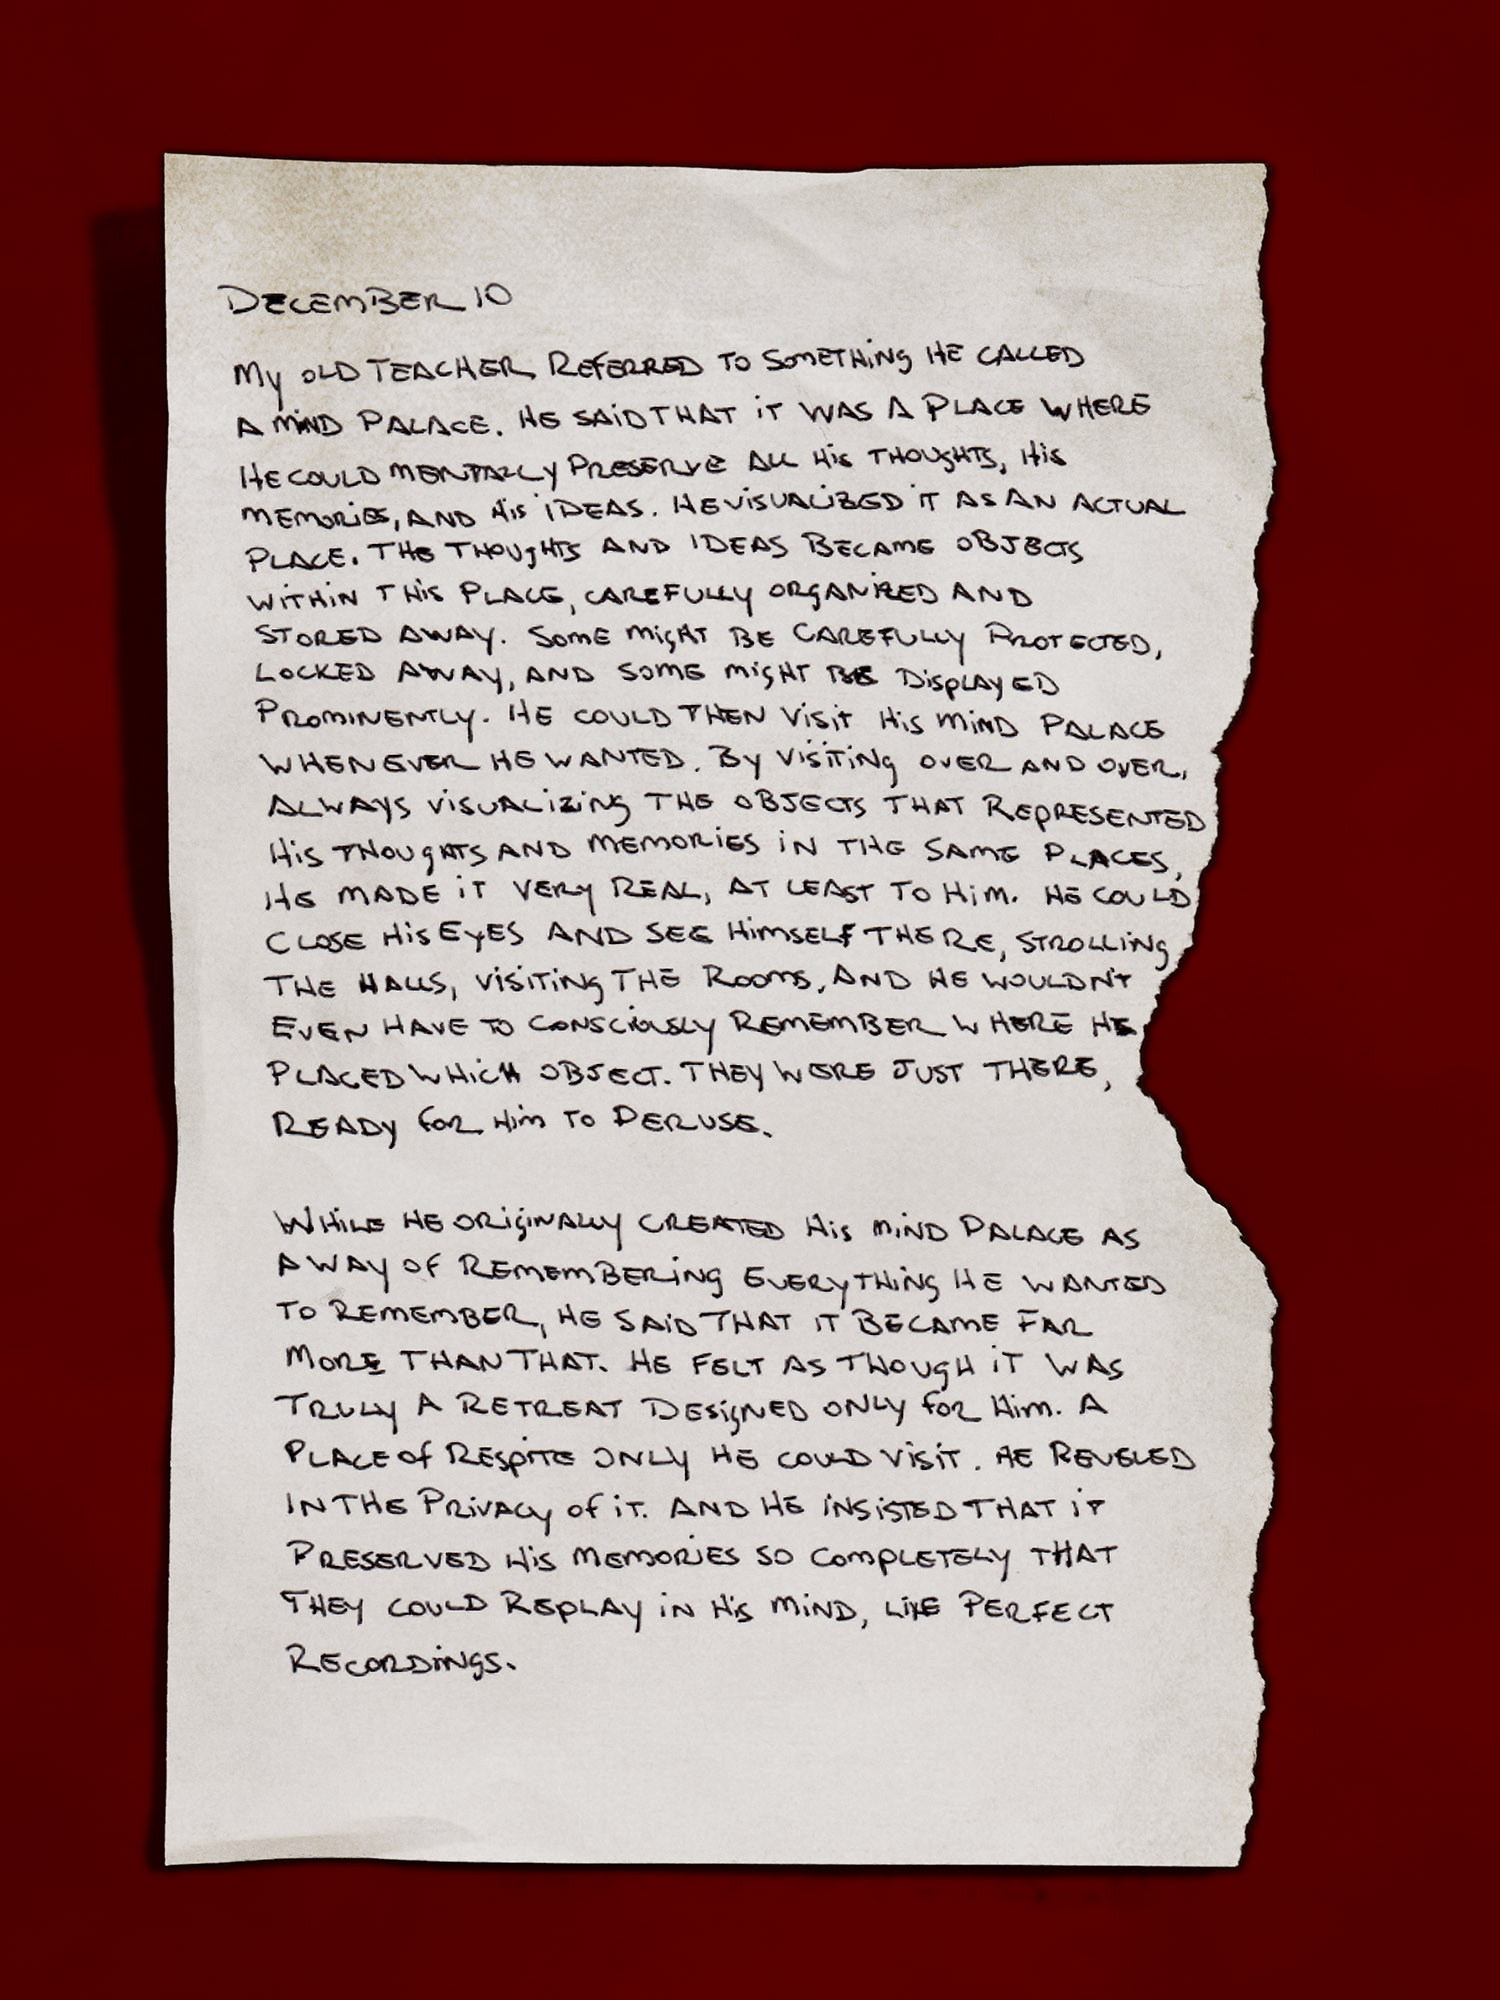 DECEMBER 10
MY OLD TEACHER REFERRED TO SOMETHING HE CALLED
A MIND PALACE. HE SAID THAT IT WAS A PLACE WHERE
HE COULD MENTALLY PRESERVE ALL HIS THOUGHTS, HIS
MEMORIES, AND HIS IDEAS. HE VISUALIZED IT AS AN ACTUAL
PLACE. THE THOUGHTS AND IDEAS BECAME OBJECTS
WITHIN THIS PLACE, CAREFULLY ORGANIZED AND
STORED AWAY. SOME MIGHT BE CAREFULLY PROTECTED,
LOCKED AWAY, AND SOME MIGHT BE DISPLAYED
PROMINENTLY. HE COULD THEN VISIT HIS MIND PALACE
WHENEVER HE WANTED. BY VISITING OVER AND OVER,
ALWAYS VISUALIZING THE OBJECTS THAT REPRESENTED
HIS THOUGHTS AND MEMORIES IN THE SAME PLACES,
HE MADE IT VERY REAL, AT LEAST TO HIM. HE COULD
CLOSE HIS EYES AND SEE HIMSELF THERE, STROLLING
THE HALLS, VISITING THE ROOMS, AND HE WOULDN'T
EVEN HAVE TO CONSCIOUSLY REMEMBER WHERE HE
PLACED WHICH OBJECT. THEY WERE JUST THERE,
READY FOR HIM TO PERUSE.
WHILE HE ORIGINALLY CREATED HIS MIND PALACE AS
A WAY OF REMEMBERING EVERYTHING HE WANTED
TO REMEMBER, HE SAID THAT IT BECAME FAR
MORE THAN THAT. HE FELT AS THOUGH IT WAS
TRULY A RETREAT DESIGNED ONLY FOR HIM. A
PLACE OF RESPITE ONLY HE COULD VISIT. HE REVELED
IN THE PRIVACY OF IT. AND HE INSISTED THAT IT
PRESERVED HIS MEMORIES SO COMPLETELY THAT
THEY COULD REPLAY IN HIS MIND, LIKE PERFECT
RECORDINGS.